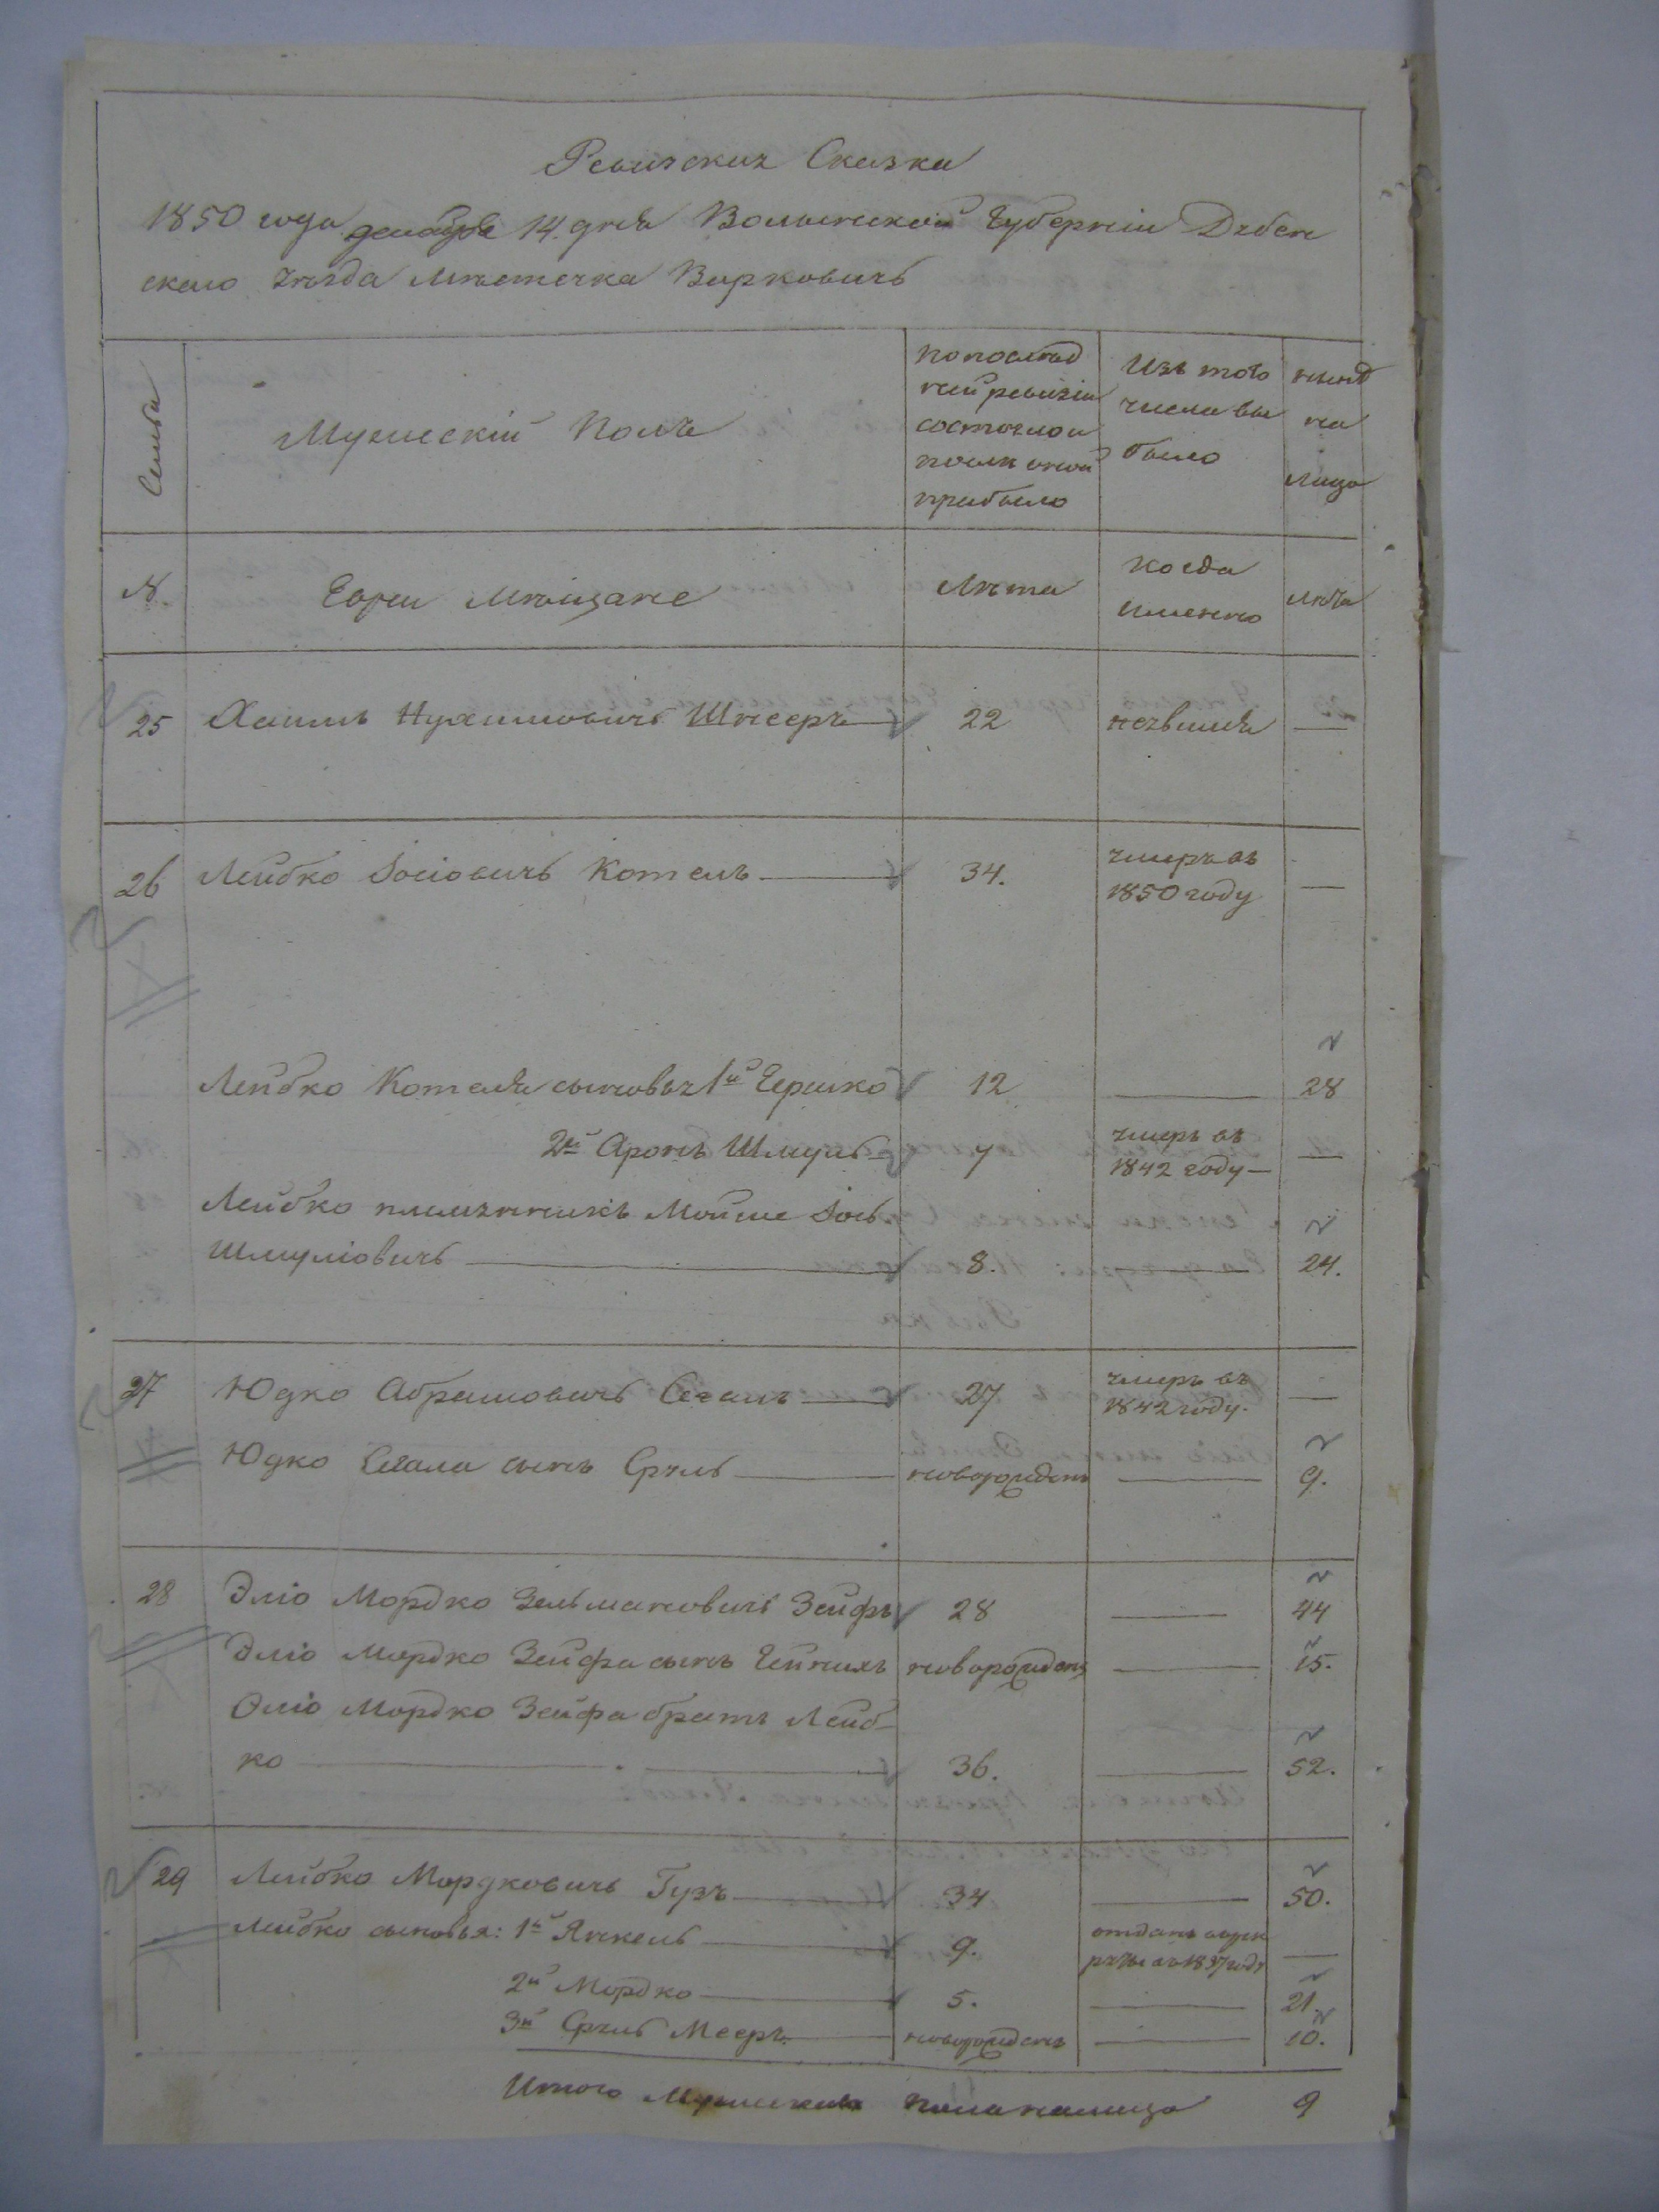 Ревизская Сказка
1850 года декабря 14 дня Волынской Губерніи Дубен
скаго уѣзда Мѣстечка Варковичь
Семьи
Мужескій Полъ
по послѣд
ней ревизіи
состояло и
послѣ оной
прибыло
Изъ того
числа вы
было
нынѣ
на
лицо
№.
Евреи Мѣщане
Лѣта
когда
именно
Лѣта
25 Хаимъ Нухимовичь Шнееръ 22 неявился —
26 Лейбко Іосіовичь Котель 34. умеръ въ
1850 году —
Лейбко Котеля сыновья 1й Гершко 12 — 28
2й Аронъ Шмуль 7 умеръ въ
1842 году —
Лейбко племянникъ Мойше Іось
Шмуліовичь 8. — 24.
27 Юдко Абрамовичь Сегаль 27 умеръ въ
1842 году. —
Юдко Сегала сынъ Сруль новорожденъ — 9.
28 Эліо Мордко Зельмановичь Зейфъ 28 — 44
Эліо Мордко Зейфа сынъ Гейнихъ новорожденъ — 15.
Эліо Мордко Зейфа братъ Лейб-
ко 36. — 52.
29 Лейбко Мордковичь Гузъ 34 — 50.
Лейбко сыновья: 1й Янкель 9. отданъ въ рек
руты въ 1837 году —
2й Мордко 5. — 21.
3й Сруль Мееръ новорожденъ — 10.
Итого Мужеска пола налицо 9